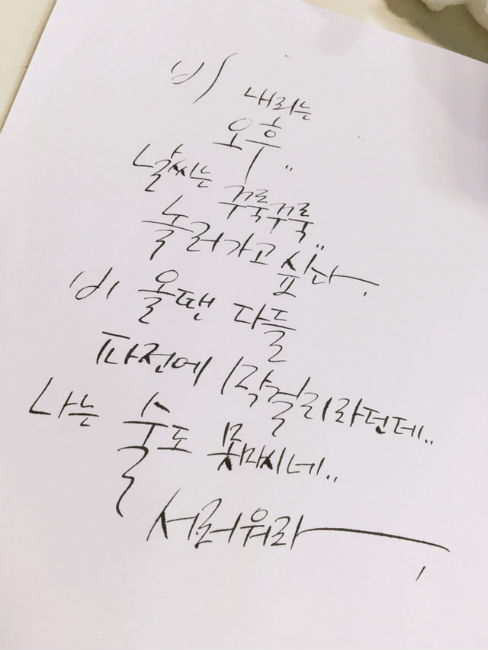 비 내리는
오후..
날씨는 꾸룩꾸룩..
놀러가고 싶다.
비 올땐 다들
파전에 막걸리라던데..
나는 술도 못마시네..
서러워라